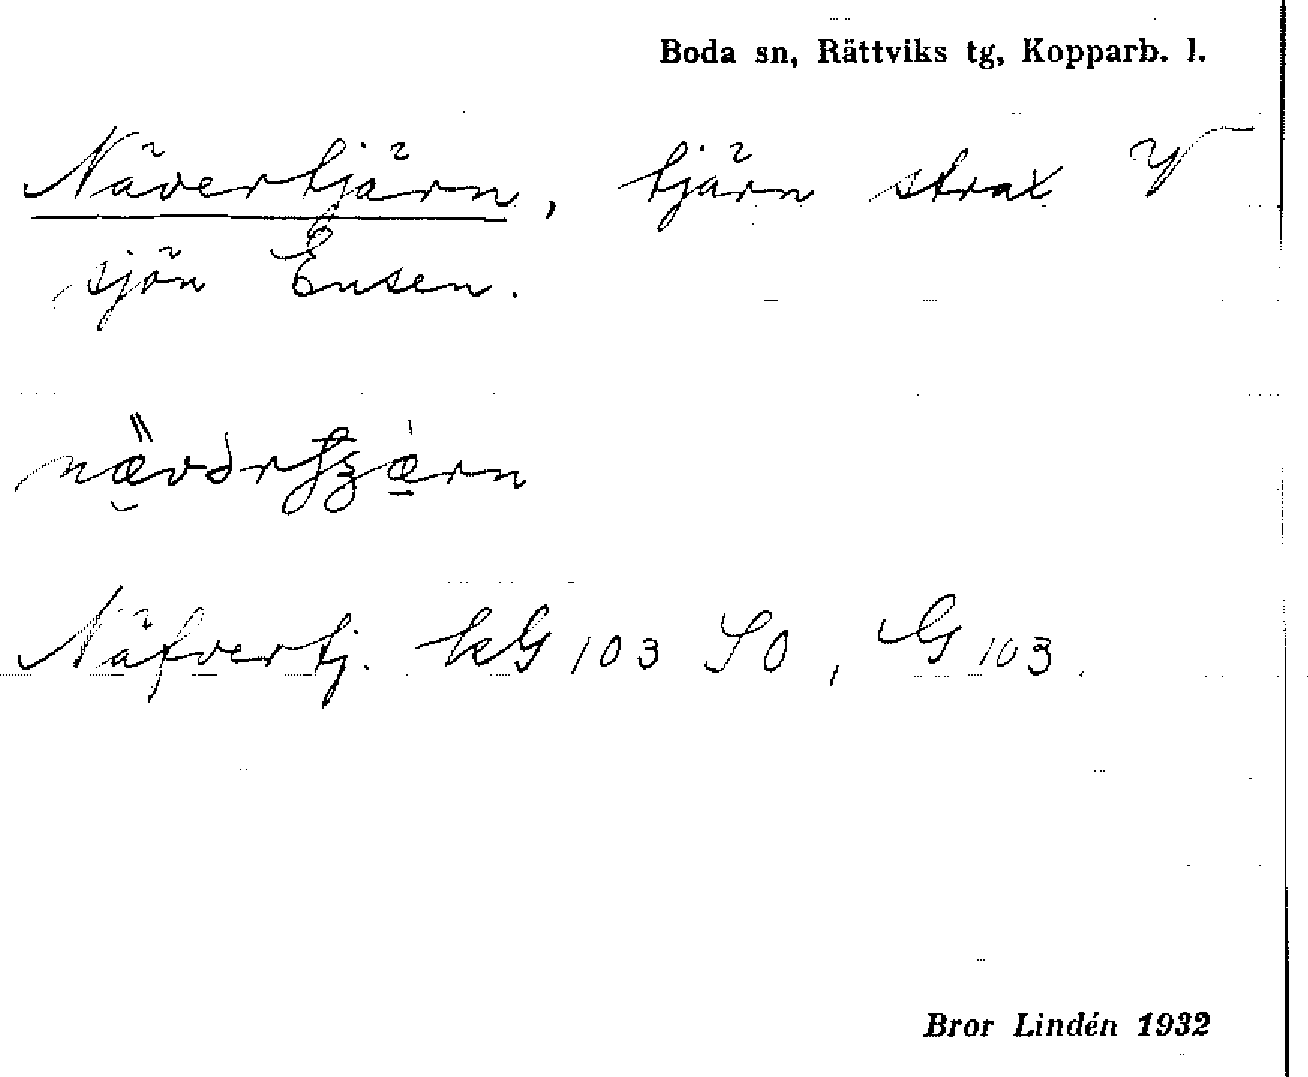 Boda sn, Rättviks tg, Kopparb. l.
Nävertjärn, tjärn strax V
sjön Ensen.
Näfvertj. kG 103 SO, G 103.
Bror Lindén 1932